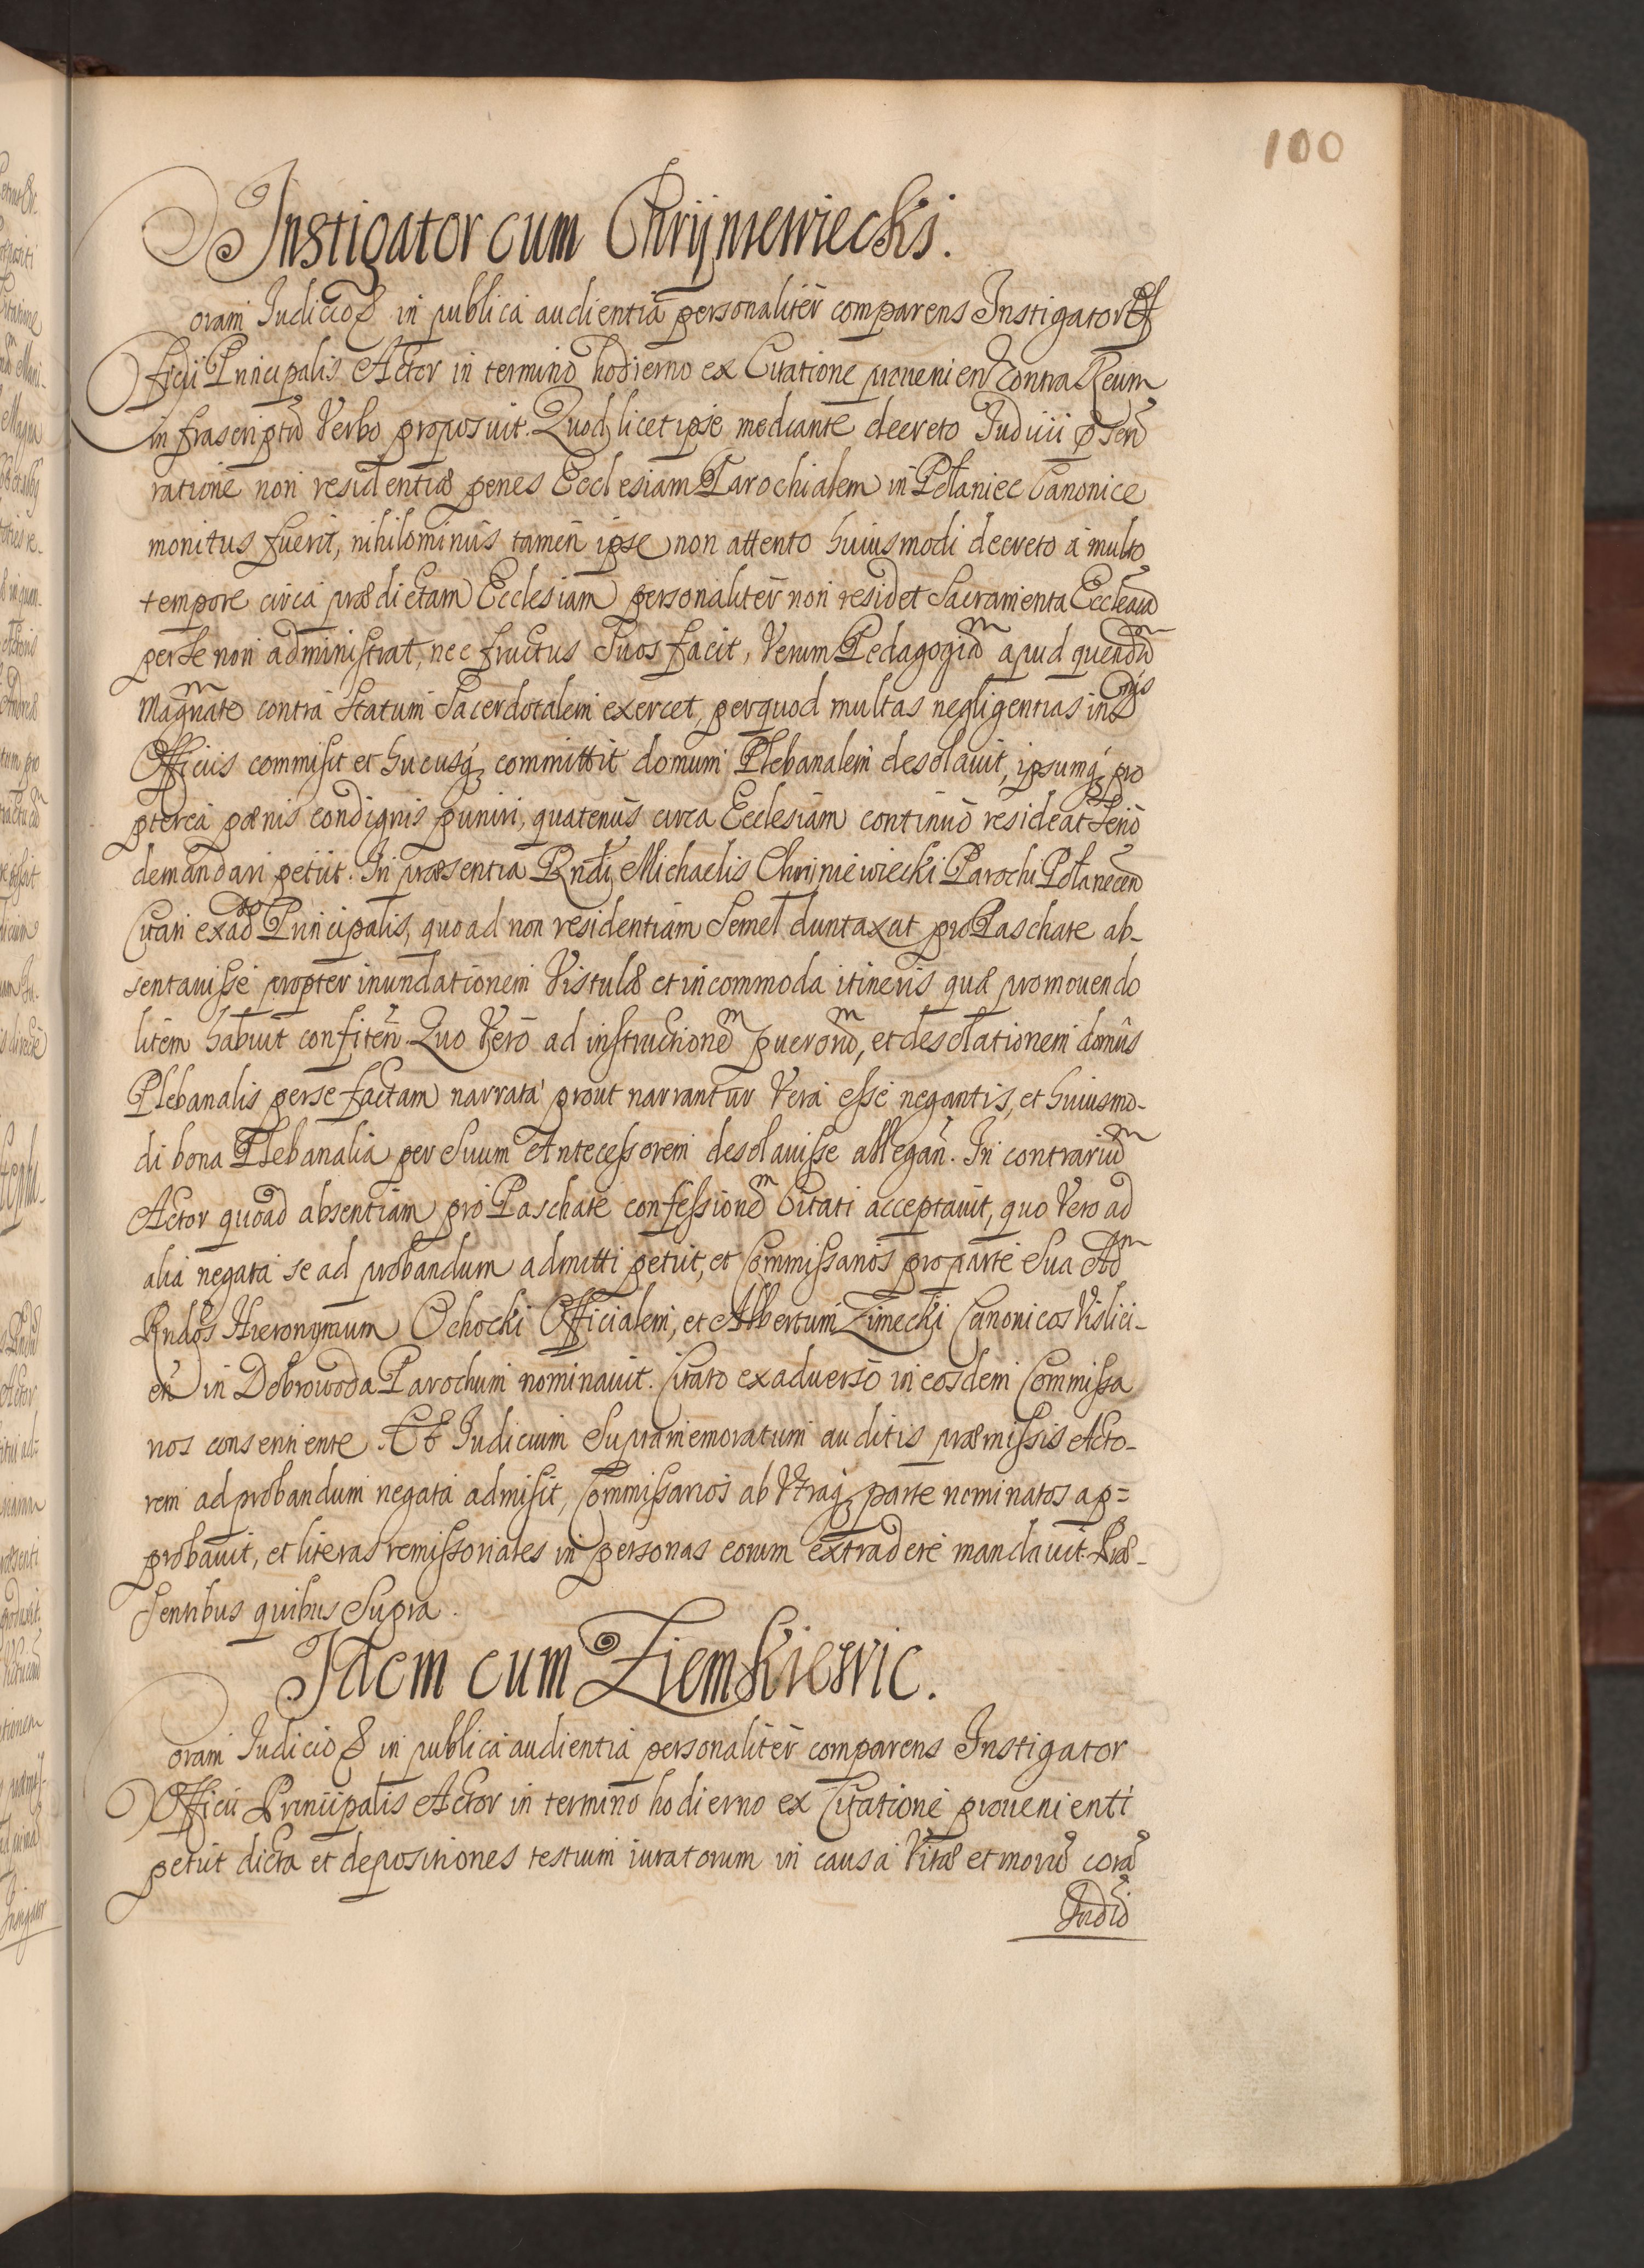 100
Instigator cum Chrijniewiecki.
Coram Judicio & in publica audientia personalitèr comparens Instigator Of
ficij Principalis Actor in termino hodierno ex Citatione provenien contra Reum
infrascriptũ Verbo proposuit. Quod licet ipse mediante decreto Judicii
ratione non residentiæ penes Ecclesiam Parochialem in Połaniec Canonice
monitus fuerit, nihilominùs tamen ipse non attento huiusmodi decreto à multo
tempore circa prædictam Ecclesiam personalitèr non residet Sacramenta Ecclesiæ
per se non administrat, nec fructus Suos facit, Verum Pedagogiam apud quendam
Magnatem contra Statum Sacerdotalem exercet, per quod multas negligentias in
Officiis commisit et hucusq committit domum Plebanalem desolavit, ipsumq pro
pterea pœnis condignis puniri, quatenùs circa Ecclesiam continuò resideat Seriò
demandari petiit. In præsentia Rndi Michaelis Chrijniewiecki Parochi Połanecen
Citati ex adso Principalis, quo ad non residentiam Semel duntaxat pro Paschate ab-
sentavisse propter inundationem Vistulæ et incommoda itineris quæ promovendo
litem habuit confiten. Quo Vero ad instructionem puerorum, et desolationem domûs
Plebanalis per se factam narrata prout narrantur Vera esse negantis, et huiusmo-
di bona Plebanalia per Suum Antecessorem desolavisse allegan. In contrarium
Actor quoad absentiam pro Paschate confessionem Citati acceptavit, quo Vero ad
alia negata se ad probandum admitti petiit, et Commissarios pro parte Sua Adm
Rndos Hieronymum Ochocki Officialem, et Albertum Zimecki Canonicos Vislici-
en in Dobrowoda Parochum nominavit. Citato ex adverso in eosdem Commissa
rios consentiente. Et Judicium Supramemoratum auditis præmissis Acto-
rem ad probandum negata admisit, Commissarios ab Vtraq parte nominatos ap=
probavit, et literas remissoriales in personas eorum extradere mandavit. Præ-
sentibus quibus Supra.
Idem cum Ziemkiewic.
Coram Judicio & in publica audientia personalitèr comparens Instigator
Officii Principalis Actor in termino hodierno ex Citatione provenienti
petiit dicta et depositiones testium iuratorum in causa Vitæ et morũ corã
Judiõ